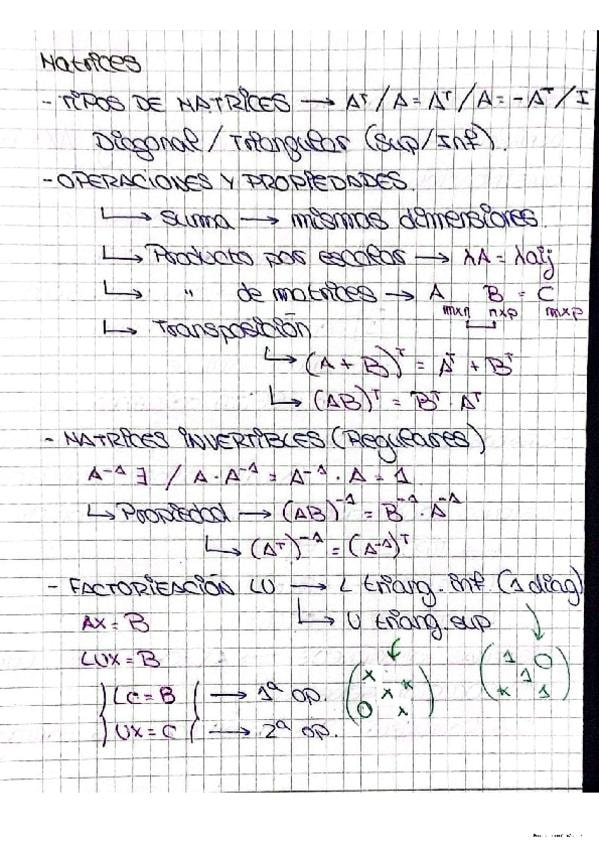 Matrices
- TIPOS DE MATRICES → Aᵀ / A = Aᵀ / A = -Aᵀ / I
Diagonal / Triangular (Sup/Inf).
- OPERACIONES Y PROPIEDADES.
↳ Suma → mismas dimensiones.
↳ Producto por escalar → λA = λaij
↳ " de matrices → A B = C
mxn nxp mxp
↳ Transposición
↳ (A + B)ᵀ = Aᵀ + Bᵀ
↳ (AB)ᵀ = Bᵀ · Aᵀ
- MATRICES INVERTIBLES (Regulares)
A⁻¹ ∃ / A · A⁻¹ = A⁻¹ · A = 1.
↳ Propiedad → (AB)⁻¹ = B⁻¹ · A⁻¹
↳ (Aᵀ)⁻¹ = (A⁻¹)ᵀ
- FACTORIZACIÓN LU → L triang. inf (1 diag)
↳ U triang. sup
AX = B
LUX = B
LC = B → 1ª op.
UX = C → 2ª op.
x
x x
0 x
1 0
1
x 1